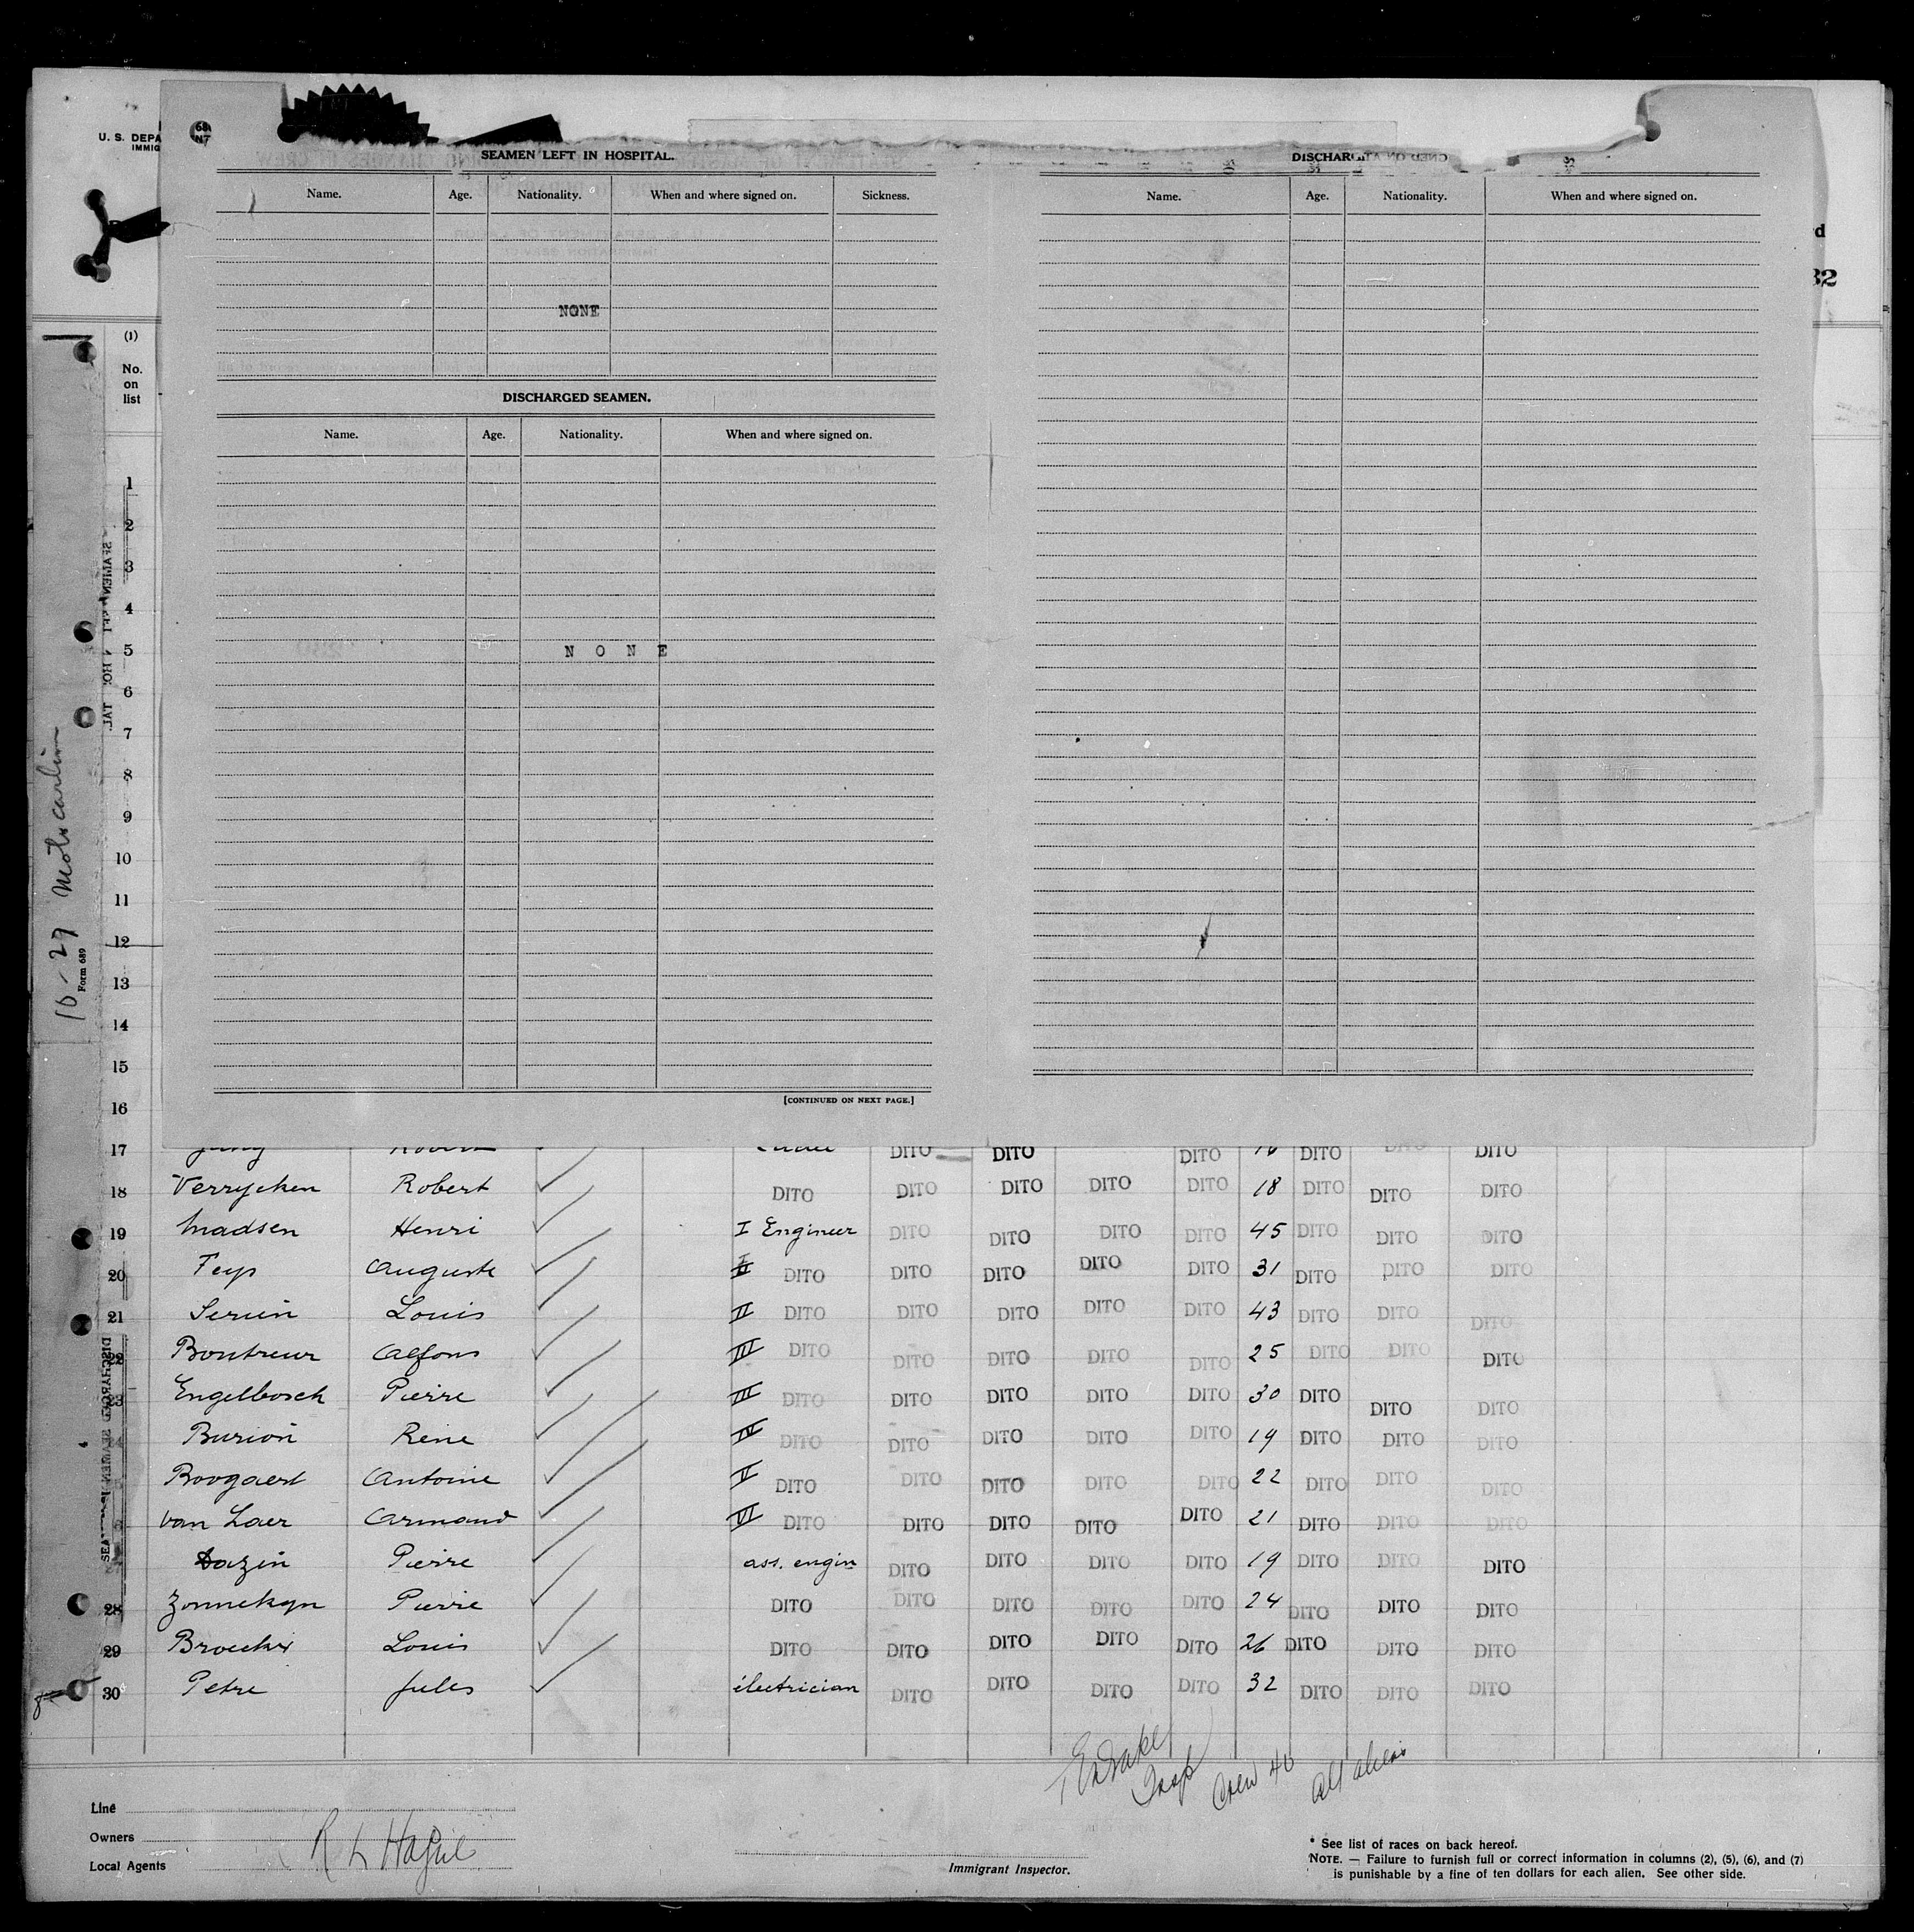 U. S. DEPA
IMMIG
68
N7
SEAMEN LEFT IN HOSPITAL.
Name. Age. Nationality. When and where signed on. Sickness.
NONE
DISCHARGED SEAMEN.
Name. Age. Nationality. When and where signed on.
N O N E
[CONTINUED ON NEXT PAGE.]
DISCHAR
Name. Age. Nationality. When and where signed on.
d
32
(1)
No.
on
list
1
2
3
4
5
6
7
8
9
10
11
12
13
14
15
16
10-29
Form 689
17 DITO DITO DITO DITO DITO
18 Verrycken Robert DITO DITO DITO DITO DITO 18 DITO DITO DITO
19 Madsen Henri I Engineer DITO DITO DITO DITO 45 DITO DITO DITO
20 Feys Auguste DITO DITO DITO DITO DITO 31 DITO DITO DITO
21 Seruin Louis II DITO DITO DITO DITO DITO 43 DITO DITO DITO
22 Bontreur Alfons III DITO DITO DITO DITO DITO 25 DITO DITO DITO
23 Engelbosch Pierre III DITO DITO DITO DITO DITO 30 DITO DITO DITO
24 Burion Rene IV DITO DITO DITO DITO DITO 19 DITO DITO DITO
Boogaert Antoine V DITO DITO DITO DITO DITO 22 DITO DITO DITO
van Laer Armand VI DITO DITO DITO DITO DITO 21 DITO DITO DITO
27 Dazin Pierre ass. engin DITO DITO DITO DITO 19 DITO DITO DITO
28 Zonnekyn Pierre DITO DITO DITO DITO DITO 24 DITO DITO DITO
29 Broeckx Louis DITO DITO DITO DITO DITO 26 DITO DITO DITO
30 Petre Jules électrician DITO DITO DITO DITO 32 DITO DITO DITO
Insp Crew 40 all aliens
Line
Owners
Local Agents
R L Hague
Immigrant Inspector.
* See list of races on back hereof.
NOTE. — Failure to furnish full or correct information in columns (2), (5), (6), and (7)
is punishable by a fine of ten dollars for each alien. See other side.